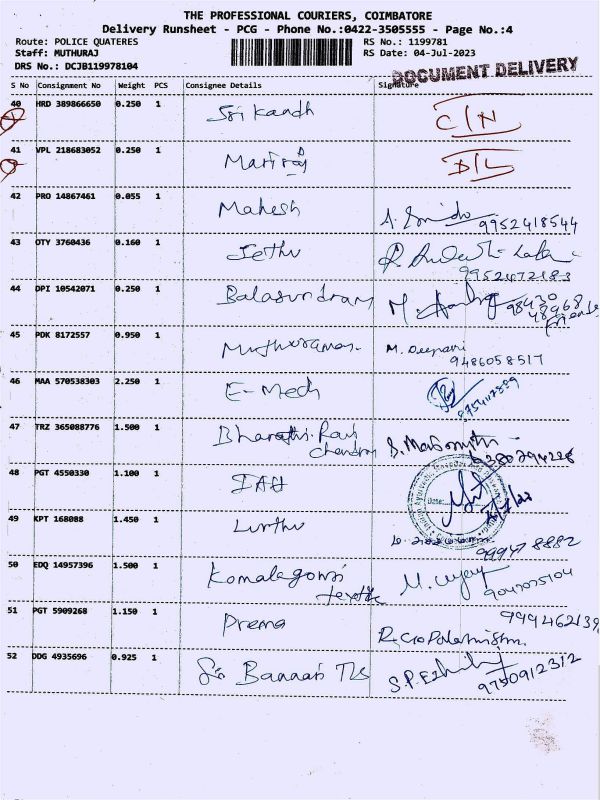 THE PROFESSIONAL COURIERS, COIMBATORE
Delivery Runsheet - PCG - Phone No.:0422-3505555 - Page No.:4
Route: POLICE QUATERES RS No.: 1199781
Staff: MUTHURAJ RS Date: 04-Jul-2023
DRS No.: DCJB119978104
DOCUMENT DELIVERY
S No Consignment No Weight PCS Consignee Details Signature
40 HRD 389866650 0.250 1 Sri kandh C/N
41 VPL 218683052 0.250 1 Mariraj D/L
42 PRO 14867461 0.055 1 Mahesh 9952418544
43 OTY 3760436 0.160 1 Sethu 9952472183
44 DPI 10542071 0.250 1 Balasundram 98430 48968
45 PDK 8172557 0.950 1 Muthuraman M. Deepani
9486058517
46 MAA 570538303 2.250 1 E-Mech
47 TRZ 365088776 1.500 1 Bharathi Ravi
chandran
6380294228
48 PGT 4550330 1.100 1 IAH
Date:
49 KPT 168088 1.450 1
50 EDQ 14957396 1.500 1 Komalagowri
textile
M. Vijay
51 PGT 5909268 1.150 1 Prema
52 DDG 4935696 0.925 1 Sri Bannari TLS
9750912312